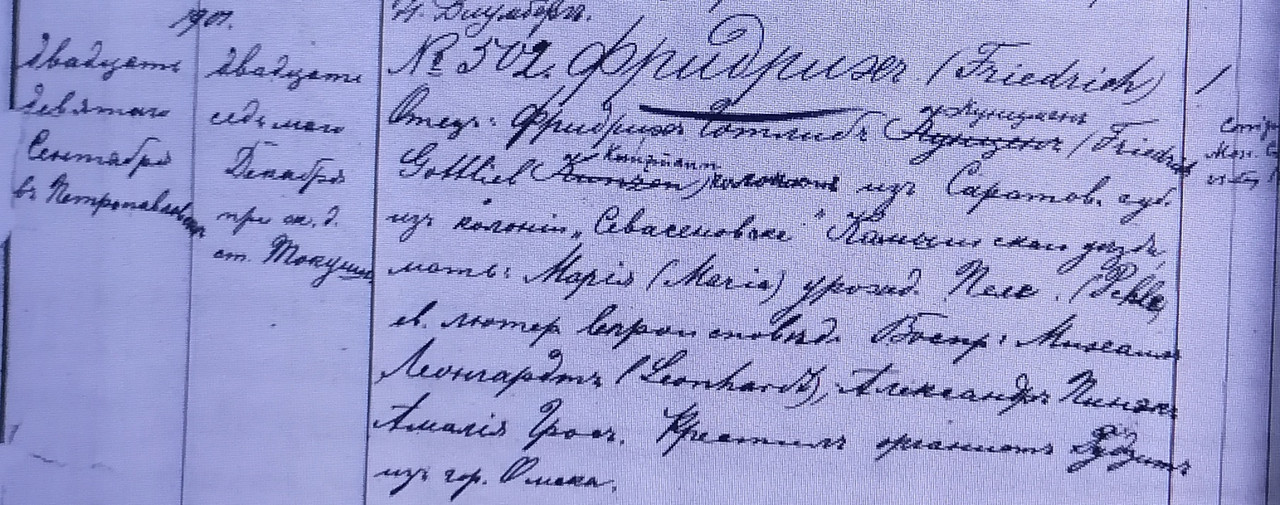 1901.
двадцать
девятаго
Сентября
въ Петропавловскѣ
двадцать
седьмаго
Декабря
при ж. д.
ст. Токуши
№ 502. Фридрихъ (Friedrich)
Отецъ: Фридрихъ Готлибъ (Friedrich
Gottlieb колонистъ изъ Саратов. губ.
изъ колоніи „Севастьяновка“ Камышинскаго уѣзда,
мать: Марія (Maria) урожд. Пеле. (Pehle)
ев. лютер. вѣроисповѣд. Воспр: Михаилъ
Леонгардтъ (Leonhardt), Александръ
Амалія Гросъ. Крестилъ органистъ
изъ гор. Омска.